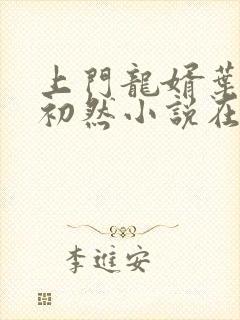 上門龍婿葉
初然小説在
李進安